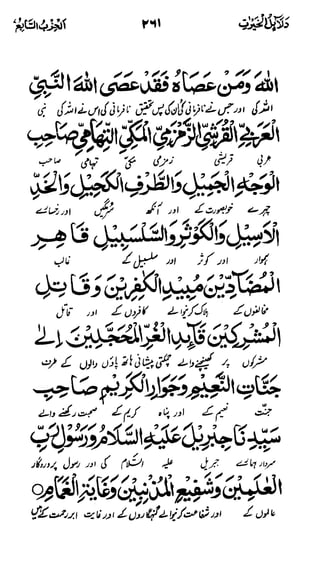 دَلَائِلُ الْخَيْرَاتِ ۲۶۱ اَلْحِزْبُ السَّابِعُ
اللهَ وَمَنْ عَصَاهُ فَقَدْ عَصَى اللهَ النَّبِيِّ
اللہ کی اور جس نے نافرمانی کی ان کی پس تحقیق نافرمانی کی اس نے اللہ کی نبی
الْعَرَبِيِّ الْقُرَشِيِّ الزَّمْزَمِيِّ الْمَكِّيِّ التِّهَامِيِّ صَاحِبِ
عربی قریشی زمزمی مکی تہامی صاحب
الْوَجْهِ الْجَمِيْلِ وَالطَّرْفِ الْكَحِيْلِ وَالْخَدِّ
چہرے خوبصورت کے اور آنکھ سرمگیں اور رخسارے
الْاَسِيْلِ وَالْكَوْثَرِ وَالسَّلْسَبِيْلِ قَاهِرِ
ہموار اور کوثر اور سلسبیل کے غالب
الْمُضَادِّيْنَ مُبِيْدِ الْكٰفِرِيْنَ وَقَاتِلِ
مخالفوں کے ہلاک کرنیوالے کافروں کے اور قاتل
الْمُشْرِكِيْنَ قَآئِدِ الْغُرِّ الْمُحَجَّلِيْنَ اِلٰى
مشرکوں پر کھینچنے والے چمکتی پیشانی ہاتھ پاؤں والوں کے طرف
جَنَّاتِ النَّعِيْمِ وَجِوَارِ الْكَرِيْمِ صَاحِبِ
جنت نعیم کے اور پناہ کریم کے صحبت رکھنے والے
سَيِّدِنَا جِبْرِيْلَ عَلَيْهِ السَّلَامُ وَرَسُوْلِ رَبِّ
سردار ہمارے جبریل علیہ السلام کی اور رسول پروردگار
الْعٰلَمِيْنَ وَشَفِيْعِ الْمُذْنِبِيْنَ وَغَايَةِ الْغَمَامِ ○
عالموں کے اور شفاعت کرنیوالے گنہگاروں کے اور غایت ابر رحمت کے